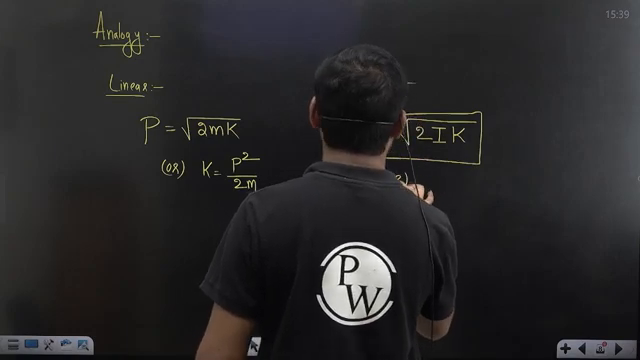 15:39
Analogy:-
Linear:-
P = √2mK
√2IK
(or) K = P²/2m
P
W